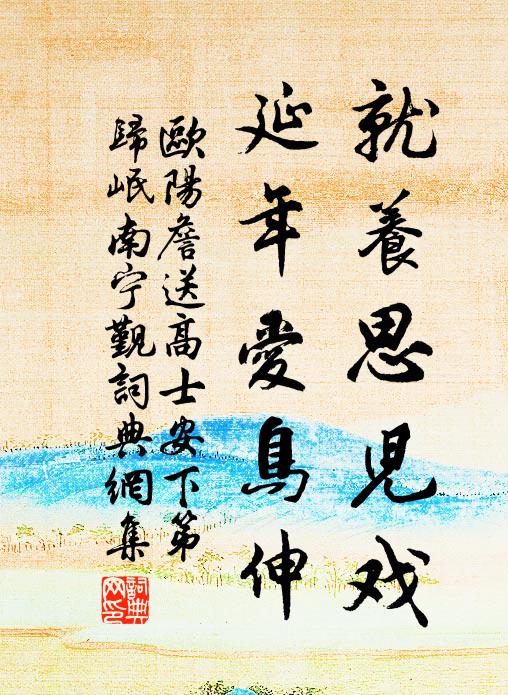 就養思兒戏
延年愛鳥伸
歐陽詹送高士安下第
歸岷南宁觐詞典網集
詞典
网印